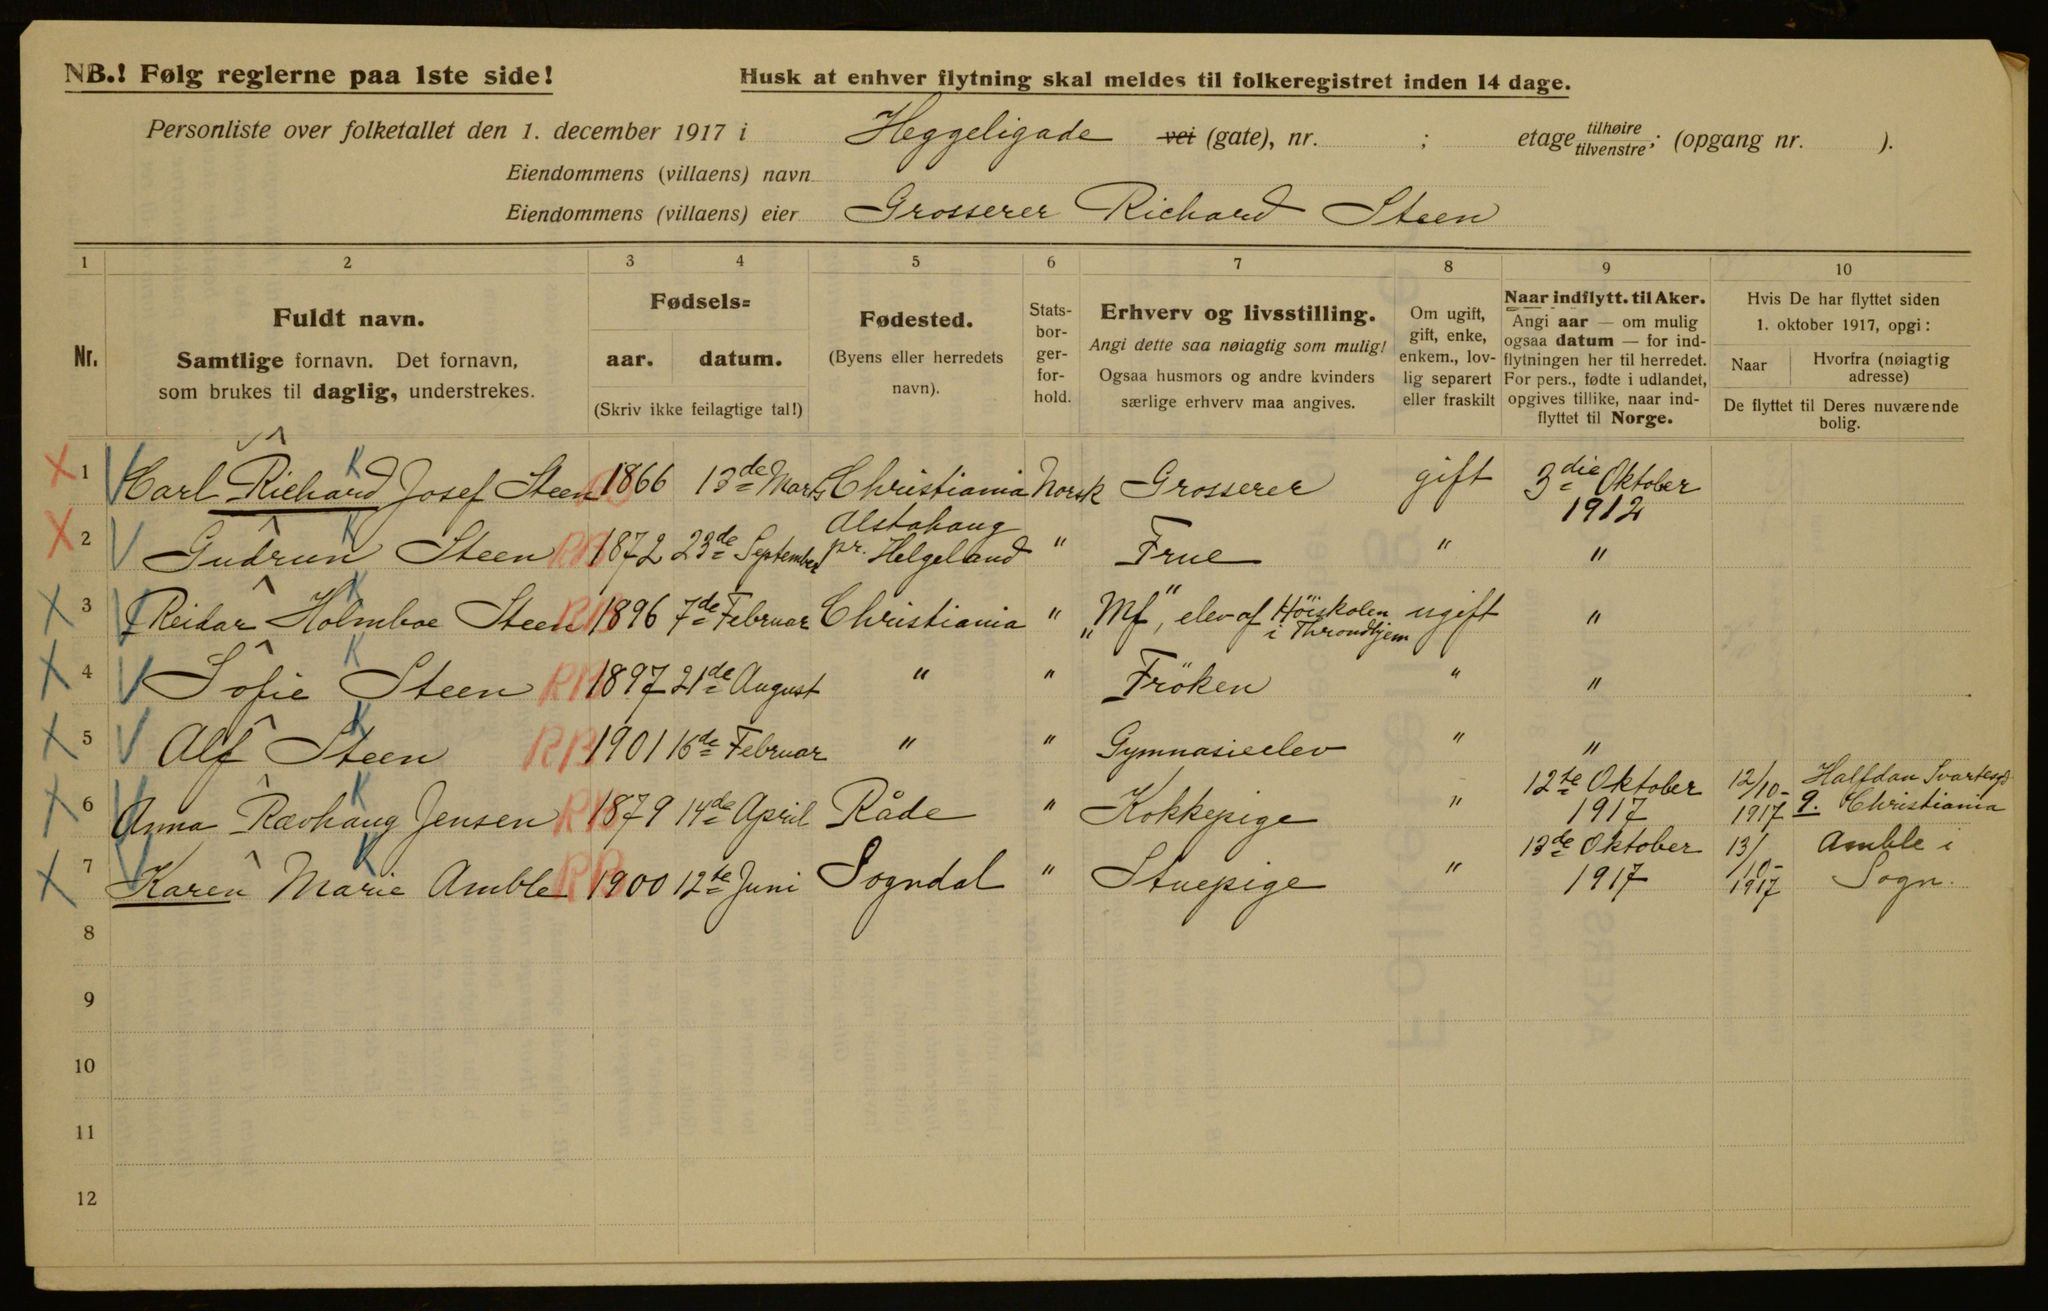 NB.! Følg reglerne paa 1ste side!
Husk at enhver flytning skal meldes til folkeregistret inden 14 dage.
Personliste over folketallet den 1. december 1917 i Heggeligade vei (gate), nr. ; etage tilhøire tilvenstre; (opgang nr. ).
Eiendommens (villaens) navn
Eiendommens (villaens) eier Grosserer Richard Steen
1 2 3 4 5 6 7 8 9 10
Nr.
Fuldt navn.
Samtlige fornavn. Det fornavn,
som brukes til daglig, understrekes.
Fødsels=
aar. datum.
(Skriv ikke feilagtige tal!)
Fødested.
(Byens eller herredets
navn).
Stats-
bor-
ger-
for-
hold.
Erhverv og livsstilling.
Angi dette saa nøiagtig som mulig!
Ogsaa husmors og andre kvinders
særlige erhverv maa angives.
Om ugift,
gift, enke,
enkem., lov-
lig separert
eller fraskilt
Naar indflytt. til Aker.
Angi aar — om mulig
ogsaa datum — for ind-
flytningen her til herredet.
For pers., fødte i udlandet,
opgives tillike, naar ind-
flyttet til Norge.
Hvis De har flyttet siden
1. oktober 1917, opgi:
Naar
Hvorfra (nøiagtig
adresse)
De flyttet til Deres nuværende
bolig.
X 1 V Carl Richard Josef Steen 1866 13de Marts Christiania Norsk Grosserer gift 3die Oktober 1912
X 2 V Gudrun Steen RB 1872 23de September Alstahaug pr. Helgeland " Frue " "
X 3 V Reidar Holmboe Steen RB 1896 7de Februar Christiania " "Mf", elev af Höiskolen i Throndhjem ugift "
X 4 V Sofie Steen RB 1897 21de August " " Fröken " "
X 5 V Alf Steen RB 1901 16de Februar " " Gymnasieelev " "
X 6 V Anna Rævhaug Jensen RB 1879 14de April Råde " Kokkepige " 12te Oktober 1917 12/10-1917 Halfdan Svartesgd 9. Christiania
X 7 V Karen Marie Amble RB 1900 12te Juni Sogndal " Stuepige " 13de Oktober 1917 13/10-1917 Amble i Sogn.
8
9
10
11
12